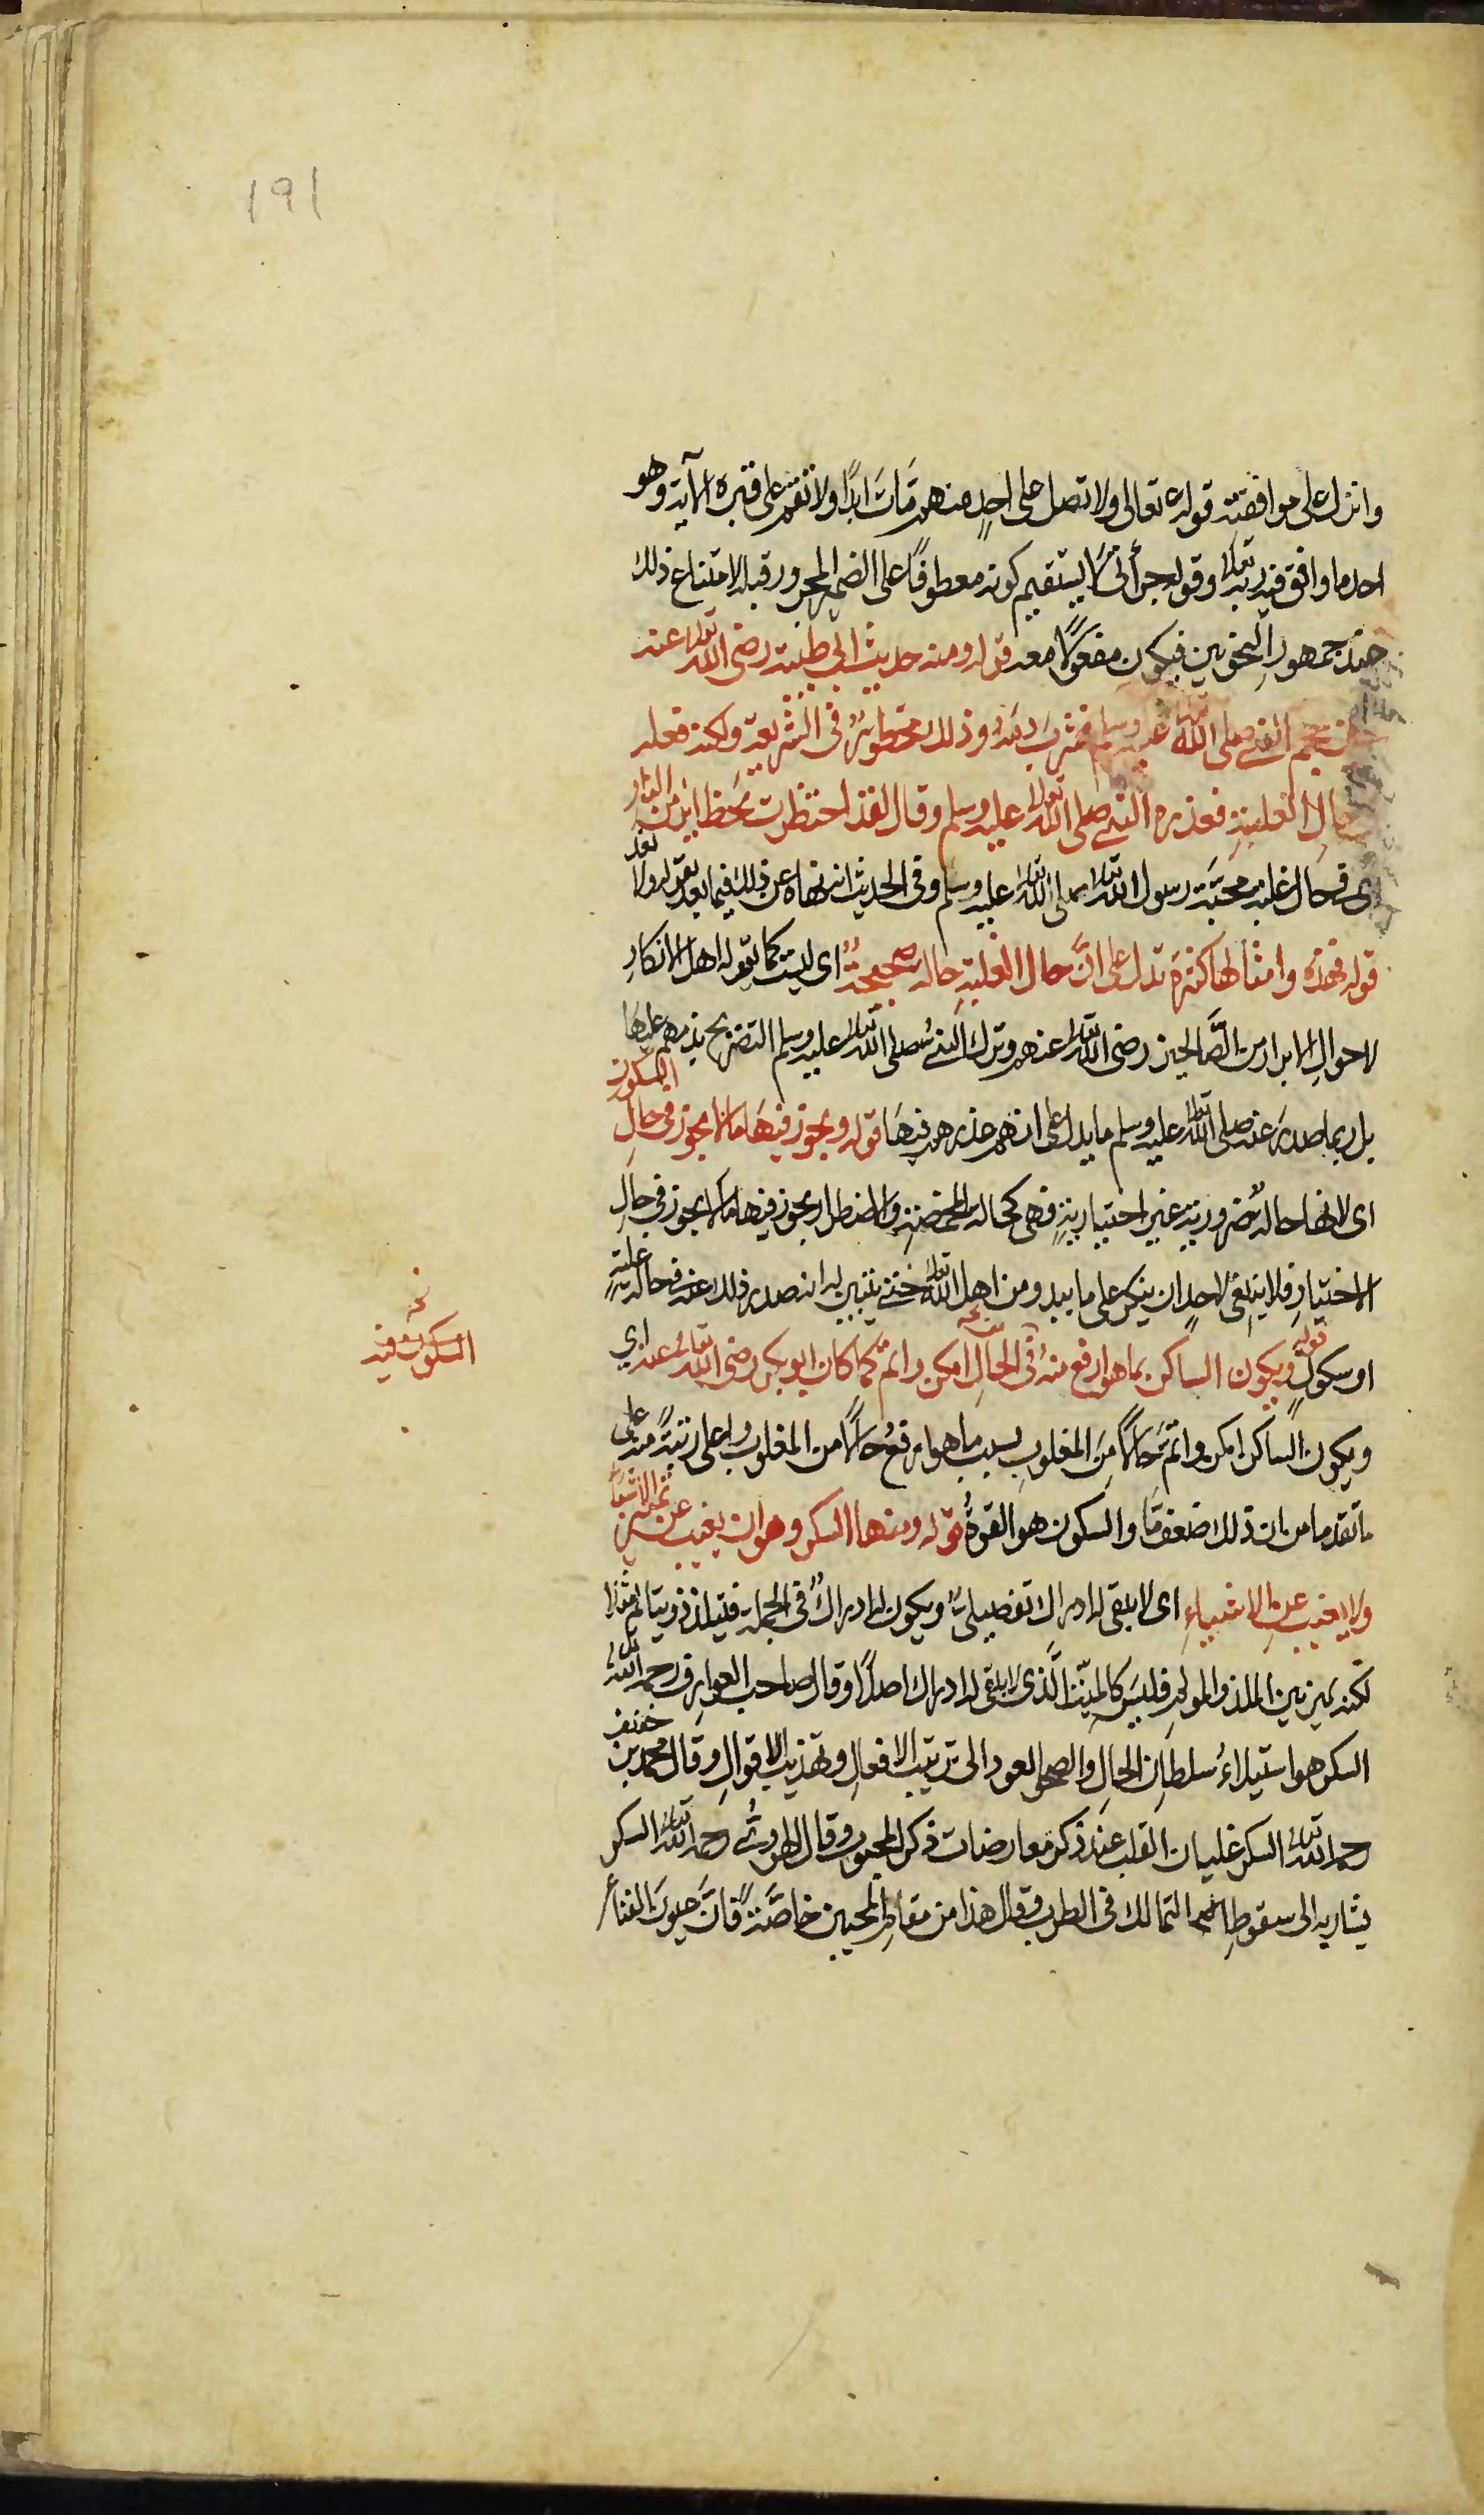 191
وانزل على موافقته قوله تعالى ولا تصل على احدٍ منهم مَاتَ ابدًا ولا تقم على قبره الآية وهو
احد ما وافق فيه ربه تعالى وقوله جرأتي لا يستقيم كونه معطوفًا على الضمير المجرور قبله لامتناع ذلك
عند جمهور النحويين فيكون مفعولًا معه قوله ومنه حديث ابي طيبة رضى الله تعالى عنه
حين حجم النبي صلى الله تعالى عليه وسلم فشرب دمه وذلك محظورٌ في الشريعة ولكنه فعله
حال الغلبةِ فعذره النبي صلى الله تعالى عليه وسلم وقال لقد احتظرت بحظائر من النار
اى فى حال غلبة محبّة رسول الله تعالى صلى الله تعالى عليه وسلم وفى الحديث انه نهاه عن ذلك فيما بعد بقوله ولا تعد
قوله فهذه وامثالها كثيرة تدل على انَّ حال الغلبةِ حالة صحيحةٌ اى ليست كما يقوله اهل الانكارِ
لاحوالِ الابرار من الصَّالحين رضى الله تعالى عنهم وترك النبي صلى الله تعالى عليه وسلم التصريح بذمهم عليها
بل ربما صدرَ عنه صلى الله تعالى عليه وسلم ما يدل على انهم عذرهم فيهَا قوله ويجوز فيهَا ما لا يجوز فى حالِ السكون
اى لانها حالةٌ ضرورية غير اختياريةٍ فهى كحالة المخمصة والاضطرار يجوز فيها ما لا يجوز فى حال
الاختيارِ فلا ينبغى لاحدٍ ان ينكر على ما يبدو من اهل الله تعالى حتى يتبين له انه صدر ذلك عنه فى حالة غلبةٍ
او سكونٍ قوله ويكون الساكن بما هو ارفع منه فى الحالِ امكن واتم كما كان ابو بكر رضى الله تعالى عنه اي
نخه
السكون فيه
ويكون الساكن امكن واتم حالًا مِنَ المغلوبِ بسبب ما هو ارفعُ حالًا من المغلوب واعلى رتبةً منه على
ما تقدم من ان ذلك ضعف مّا والسكون هو القوةُ قوله ومنها السكر وهو ان يغيب عن تمييز الاشياء
ولا يغيب عن الاشياءِ اى لا يبقى له ادراك تفصيليٌّ ويكون له ادراكٌ فى الجملة فيتلذذ ويتألم مثلا
لكنه يميز بين الملذ والمولم فليسَ كالميّت الَّذى لا يبقى له ادراك اصلًا وقال صاحب العوارف رحمه الله تعالى
السكر هو استيلاءُ سلطان الحالِ والصحو العود الى ترتيب الافعالِ وتهذيب الاقوالِ وقال محمد بن خفيف
رحمه الله تعالى السكر غليان القلب عند ذكر معارضات ذكر المحبوب وقال الهروىّ رحمه الله تعالى السكر
يشار به الى سقوطِ التمالك فى الطرب وقال هذا من مقامِ المحبين خاصَّةً فانَّ عيونَ الفناءِ